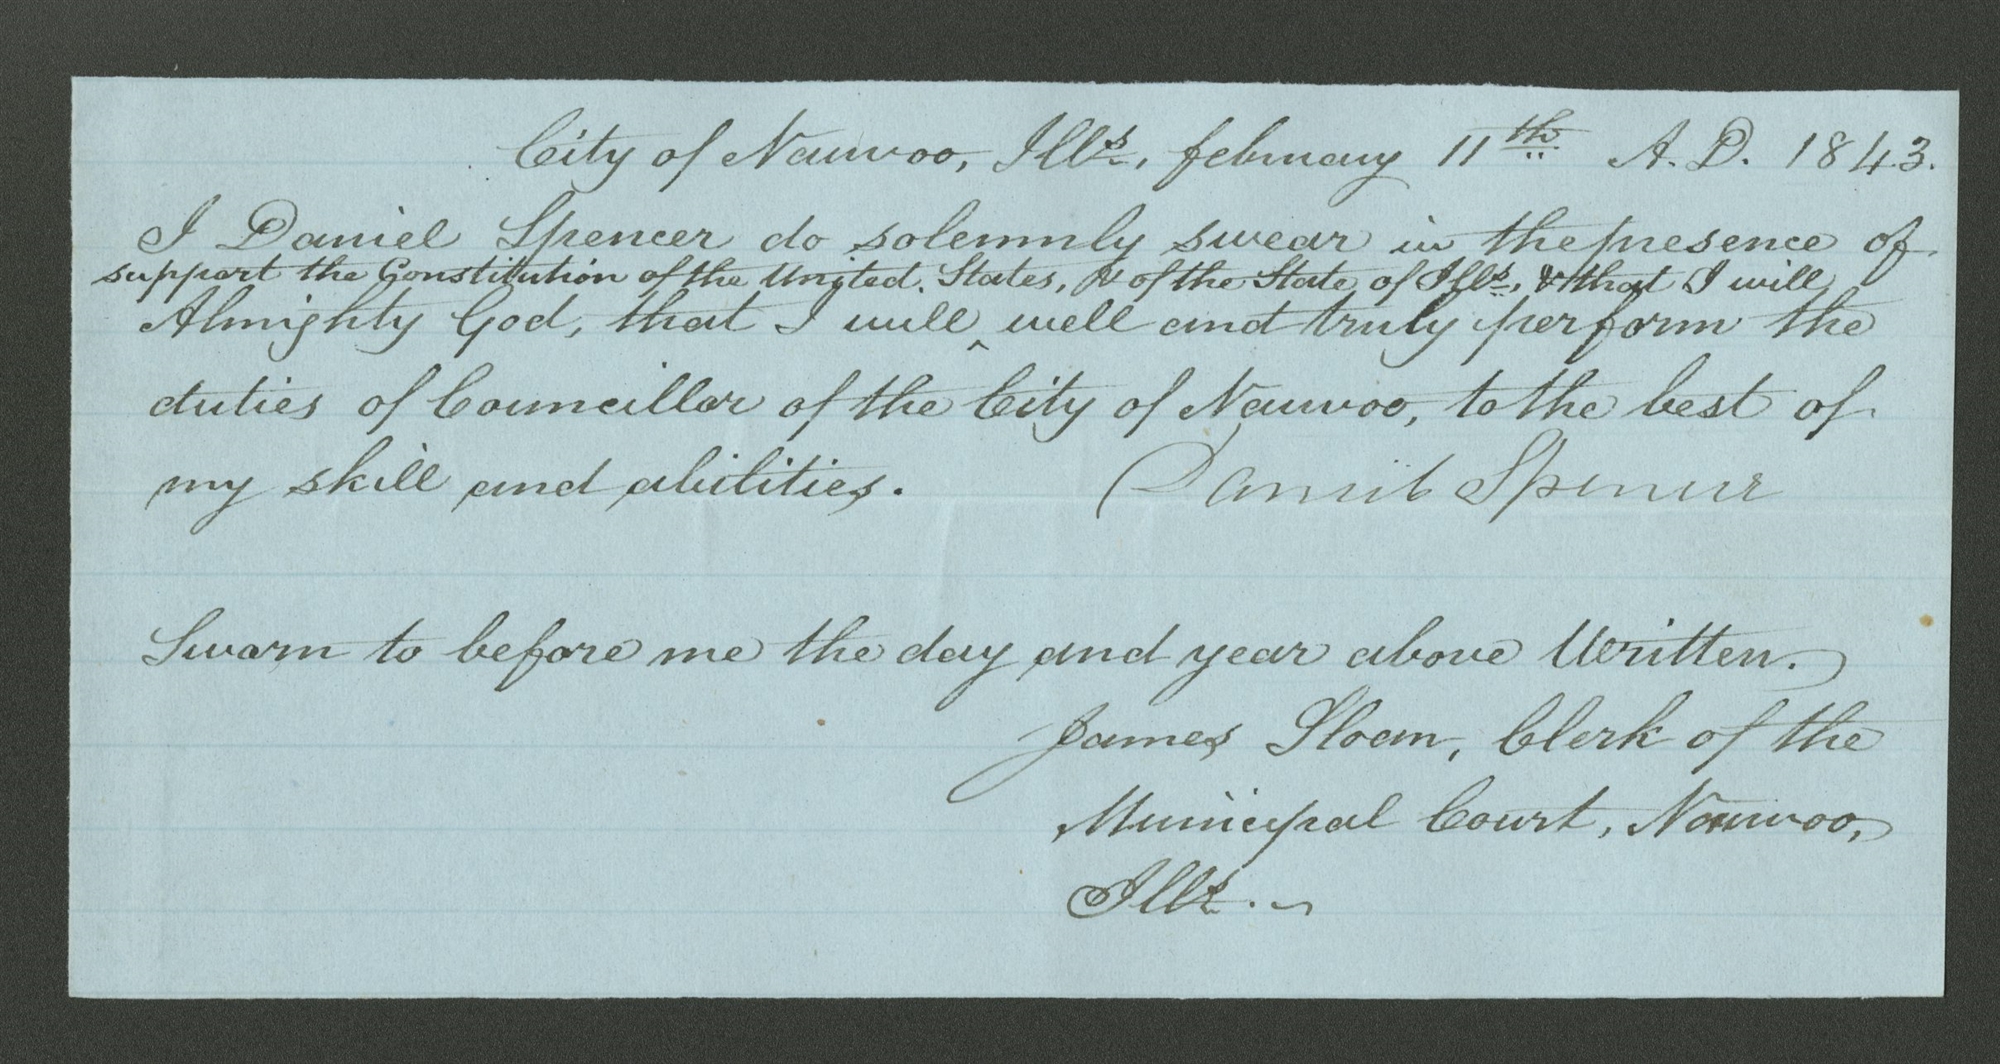 City of Nauvoo, Ills, february 11th A.D. 1843.
I Daniel Spencer do solemnly swear in the presence of
support the Constitution of the United States, & of the State of Ills, & that I will
Almighty God, that I will ^ well and truly perform the
duties of Councillor of the City of Nauvoo, to the best of
my skill and abilities. Daniel Spencer
Sworn to before me the day and year above Written.
James Sloan, Clerk of the
Municipal Court, Nauvoo,
Ills.